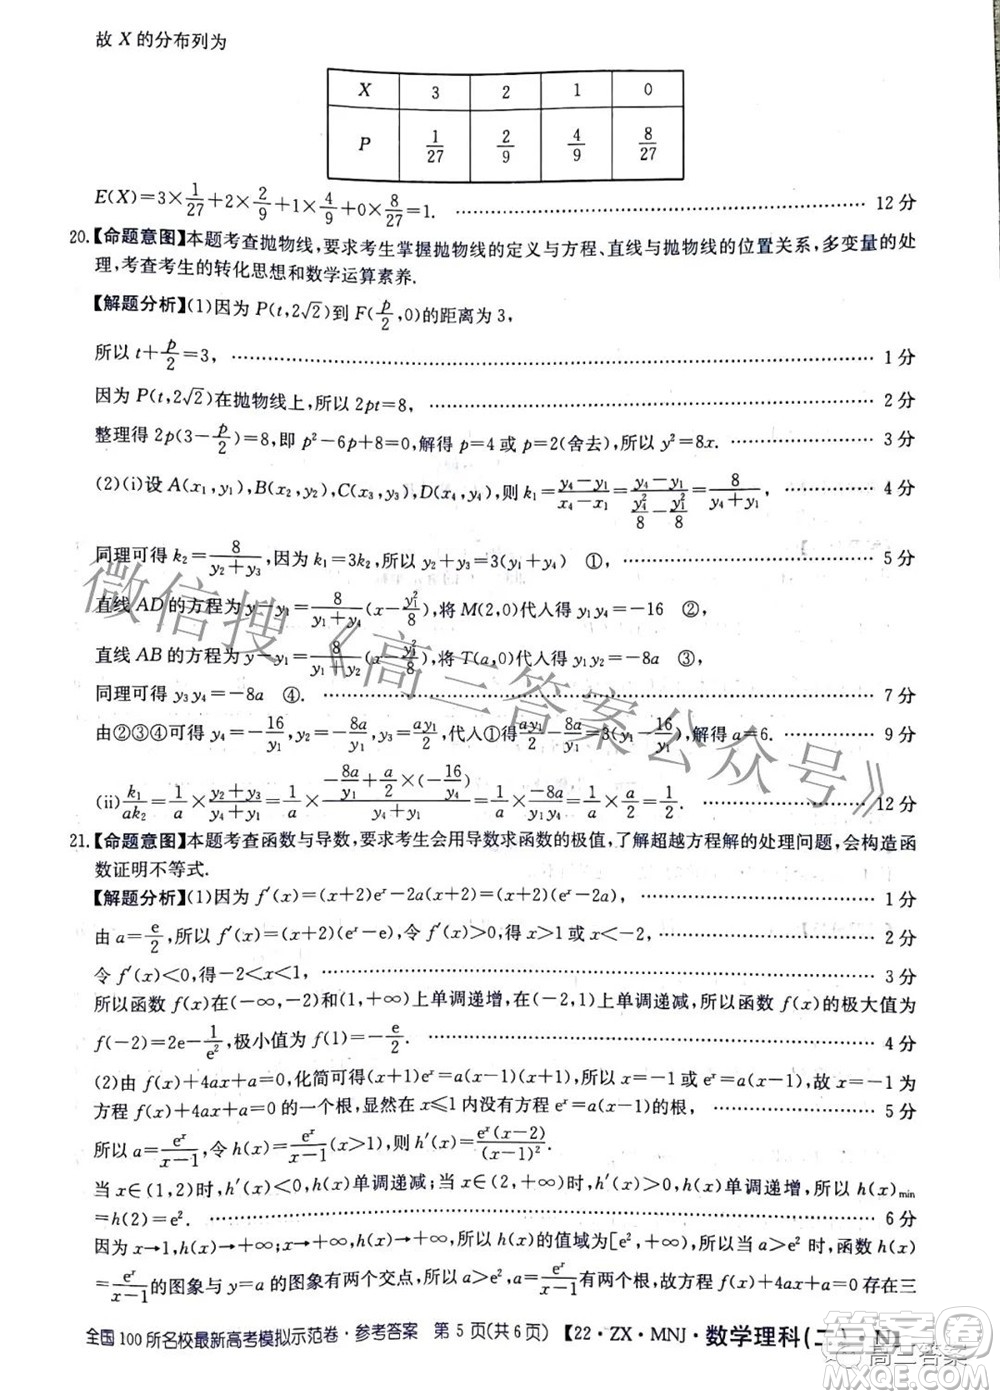 故 X 的分布列为
X 3 2 1 0
P 1/27 2/9 4/9 8/27
E(X)=3×1/27+2×2/9+1×4/9+0×8/27=1. …… 12 分
20.【命题意图】本题考查抛物线,要求考生掌握抛物线的定义与方程、直线与抛物线的位置关系,多变量的处
理,考查考生的转化思想和数学运算素养.
【解题分析】(1)因为 P(t,2√2)到 F(p/2,0)的距离为 3,
所以 t+p/2=3, …… 1 分
因为 P(t,2√2)在抛物线上,所以 2pt=8, …… 2 分
整理得 2p(3-p/2)=8,即 p²-6p+8=0,解得 p=4 或 p=2(舍去),所以 y²=8x. …… 3 分
(2)(i)设 A(x₁,y₁),B(x₂,y₂),C(x₃,y₃),D(x₄,y₄),则 k₁=(y₄-y₁)/(x₄-x₁)=(y₄-y₁)/(y₄²/8-y₁²/8)=8/(y₄+y₁), …… 4 分
同理可得 k₂=8/(y₂+y₃),因为 k₁=3k₂,所以 y₂+y₃=3(y₄+y₁) ①, …… 5 分
直线 AD 的方程为 y-y₁=8/(y₁+y₄)(x-y₁²/8),将 M(2,0)代人得 y₁y₄=-16 ②,
直线 AB 的方程为 y-y₁=8/(y₁+y₂)(x-y₁²/8),将 T(a,0)代人得 y₁y₂=-8a ③,
同理可得 y₃y₄=-8a ④. …… 7 分
由②③④可得 y₄=-16/y₁,y₂=-8a/y₁,y₃=ay₁/2,代人①得 ay₁/2-8a/y₁=3(y₁-16/y₁),解得 a=6. …… 9 分
(ii)k₁/ak₂=1/a×(y₂+y₃)/(y₄+y₁)=1/a×(-8a/y₁+a/2×(-16/y₄))/(y₄+y₁)=1/a×-8a/y₁y₄=1/a×a/2=1/2. …… 12 分
21.【命题意图】本题考查函数与导数,要求考生会用导数求函数的极值,了解超越方程解的处理问题,会构造函
数证明不等式.
【解题分析】(1)因为 f′(x)=(x+2)eˣ-2a(x+2)=(x+2)(eˣ-2a), …… 1 分
由 a=e/2,所以 f′(x)=(x+2)(eˣ-e),令 f′(x)>0,得 x>1 或 x<-2, …… 2 分
令 f′(x)<0,得-2<x<1, …… 3 分
所以函数 f(x)在(-∞,-2)和(1,+∞)上单调递增,在(-2,1)上单调递减,所以函数 f(x)的极大值为
f(-2)=2e-1/e²,极小值为 f(1)=-e/2. …… 4 分
(2)由 f(x)+4ax+a=0,化简可得(x+1)eˣ=a(x²-1)=a(x+1)(x-1),所以(x+1)[eˣ-a(x-1)]=0,故 x=-1 为
方程 f(x)+4ax+a=0 的一个根,此时在 x⩽1 内没有方程 eˣ=a(x-1)的根, …… 5 分
所以 a=eˣ/(x-1),令 h(x)=eˣ/(x-1)(x>1),则 h′(x)=eˣ(x-2)/(x-1)².
当 x∈(1,2)时,h′(x)<0,h(x)单调递减;当 x∈(2,+∞)时,h′(x)>0,h(x)单调递增,所以 h(x)min
=h(2)=e². …… 6 分
因为 x→1,h(x)→+∞;x→+∞,h(x)→+∞,所以 h(x)的值域为[e²,+∞),所以当 a>e²时,函数 h(x)
=eˣ/(x-1)的图象与 y=a 的图象有两个交点,所以 a>e²时,方程 eˣ=a(x-1)有两个根,故方程 f(x)+4ax+a=0 存在三
全国100所名校最新高考模拟示范卷·参考答案 第 5 页(共 6 页) 【22·ZX·MNJ·数学理科(二)·N】
微信搜《高三答案公众号》
高三答案